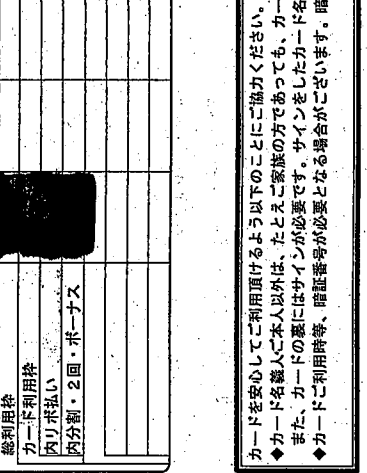 総利用枠
カード利用枠
内リボ払い
内分割・2回・ボーナス
カードを安心してご利用頂けるよう以下のことにご協力ください。
◆カード名義人ご本人以外は、たとえご家族の方であっても、カー
また、カードの裏にはサインが必要です。サインをしたカード名
◆カードご利用時等、暗証番号が必要となる場合がございます。暗